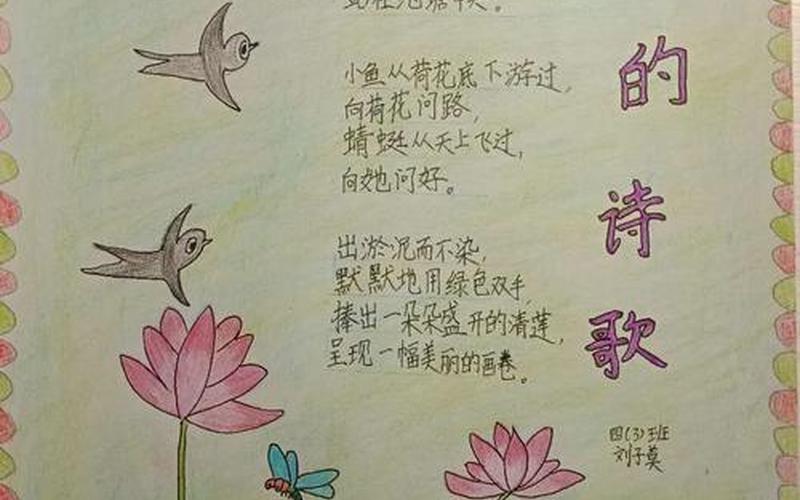 小鱼从荷花底下游过，
向荷花问路，
蜻蜓从天上飞过，
向她问好。
出淤泥而不染，
默默地用绿色双手，
捧出一朵朵盛开的清莲，
呈现一幅美丽的画卷。
的
诗
歌
四(3)班
刘子莫